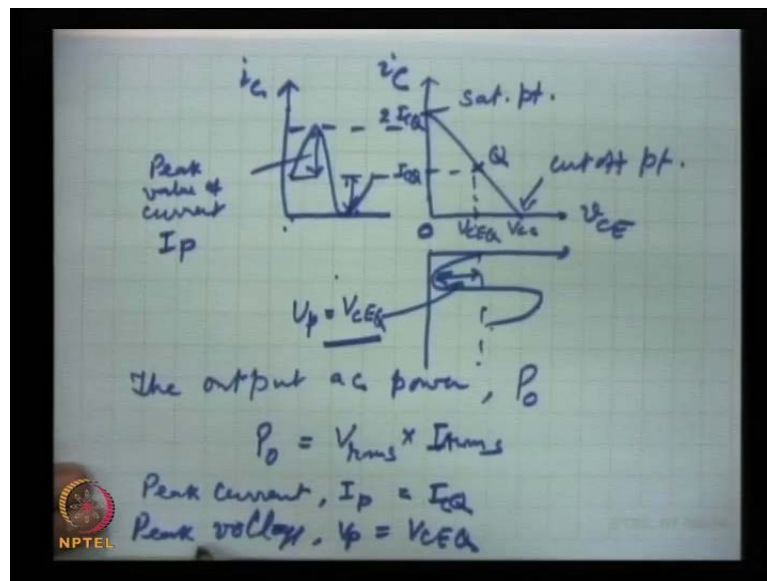 i_C
i_C
sat. pt.
2 I_CQ
Peak value of current
I_P
I_CQ
Q
cut off pt.
0
V_CEQ
V_CC
v_CE
V_P = V_CEQ
The output ac power, P_0
P_0 = V_rms × I_rms
Peak current, I_P = I_CQ
Peak voltage, V_P = V_CEQ
NPTEL